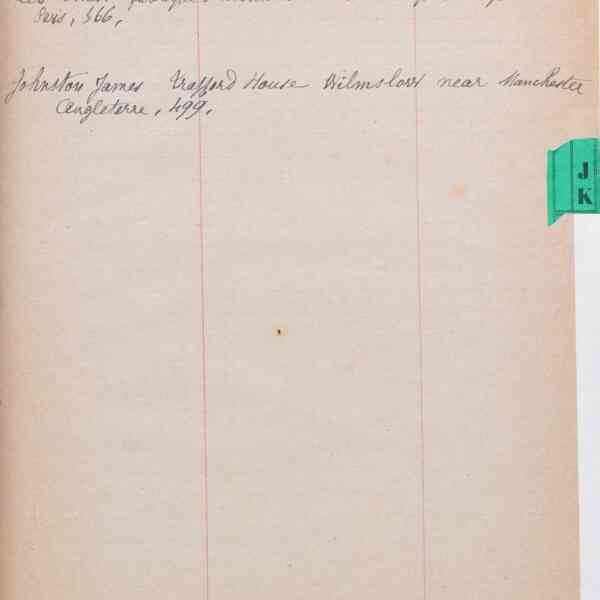 Paris, 566,
Johnston James Trafford House Wilmslow near Manchester
Angleterre, 499,
J
K